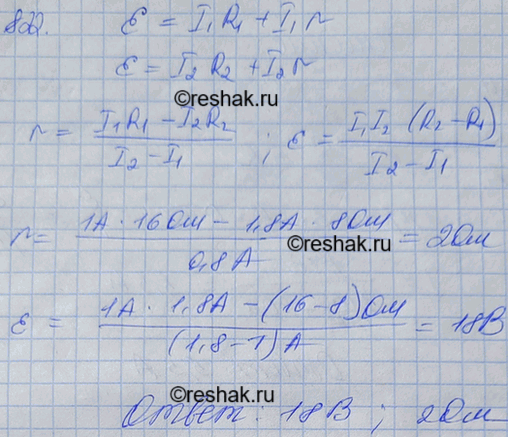 822. ℰ = I₁R₁ + I₁r
ℰ = I₂R₂ + I₂r
©reshak.ru
r = (I₁R₁ − I₂R₂)/(I₂ − I₁) ; ℰ = I₁I₂ (R₂ − R₁)/(I₂ − I₁)
r = (1А · 16Ом − 1,8А · 8Ом)/(0,8А) = 2Ом
©reshak.ru
ℰ = (1А · 1,8А − (16 − 8)Ом)/((1,8 − 1)А) = 18В
©reshak.ru
Ответ: 18В ; 2Ом